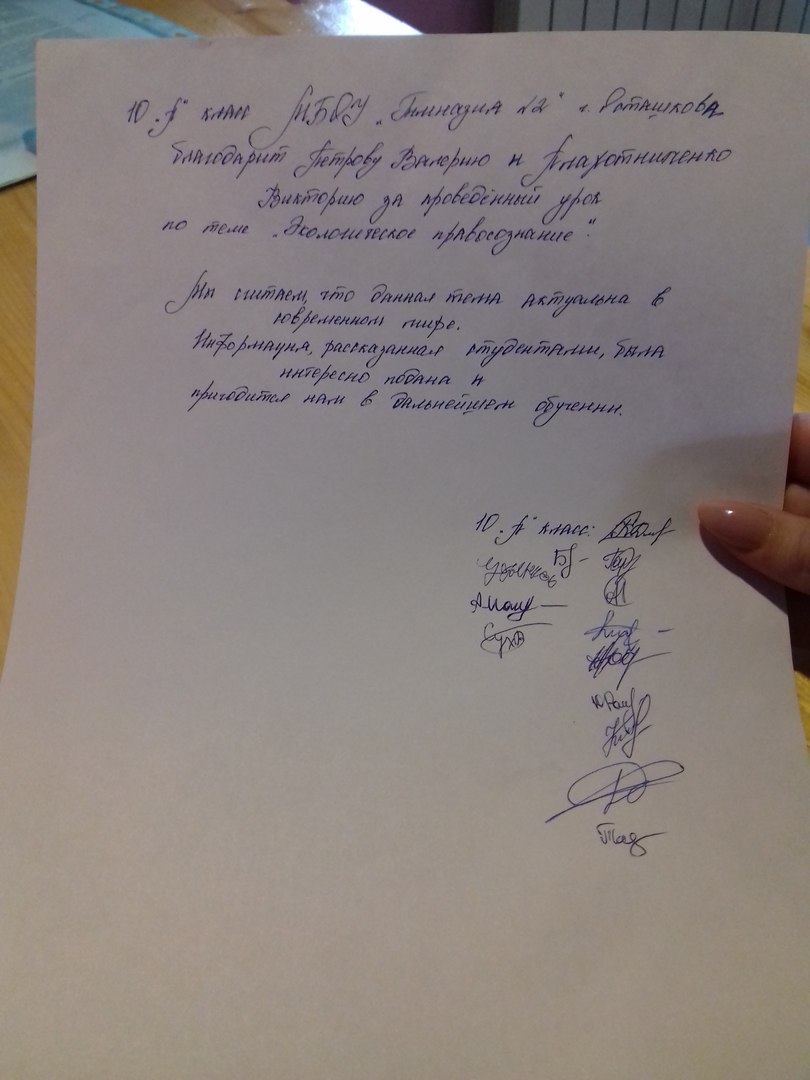 10 „А" класс МБОУ „Гимназия №2" г. Асташкова
благодарит Петрову Валерию и Плахотниченко
Викторию за проведённый урок
по теме „Экологическое правосознание".
Мы считаем, что данная тема актуальна в
современном мире.
Информация, рассказанная студентами, была
интересно подана и
пригодится нам в дальнейшем обучении.
10 „А" класс: